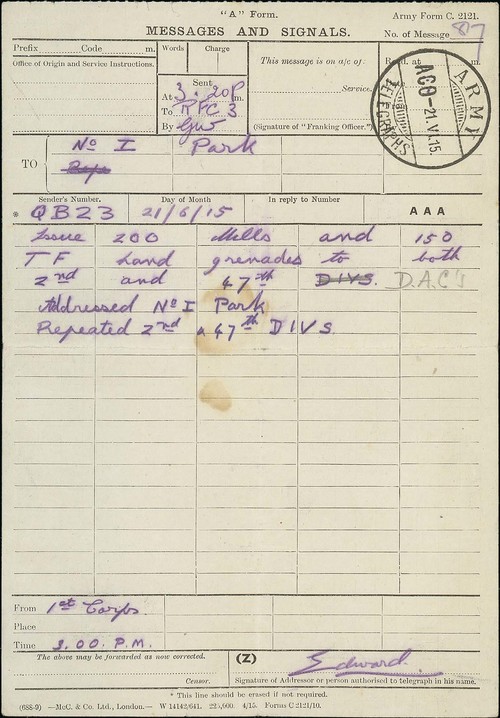 "A" Form. Army Form C. 2121.
MESSAGES AND SIGNALS. No. of Message 87
Prefix Code m. Words Charge
Office of Origin and Service Instructions.
Sent
At 3.20P m.
To RFC 3
By
This message is on a/c of:
Service.
(Signature of "Franking Officer.")
Recd. at m.
From
ARMY
TELEGRAPHS
21.VI.15.
TO No I Park
Sender's Number. Day of Month In reply to Number
* QB23 21/6/15 AAA
Issue 200 Mills and 150
TF hand grenades to both
2nd and 47th DIVS. D.A.C's
Addressed No I Park
Repeated 2nd & 47th DIVS
From 1st Corps.
Place
Time 3.00. P.M.
The above may be forwarded as now corrected. (Z) Edward.
Censor. Signature of Addressor or person authorised to telegraph in his name.
* This line should be erased if not required.
(688-9) —McC. & Co. Ltd., London.— W 14142/641. 225,000. 4/15. Forms C. 2121/10.